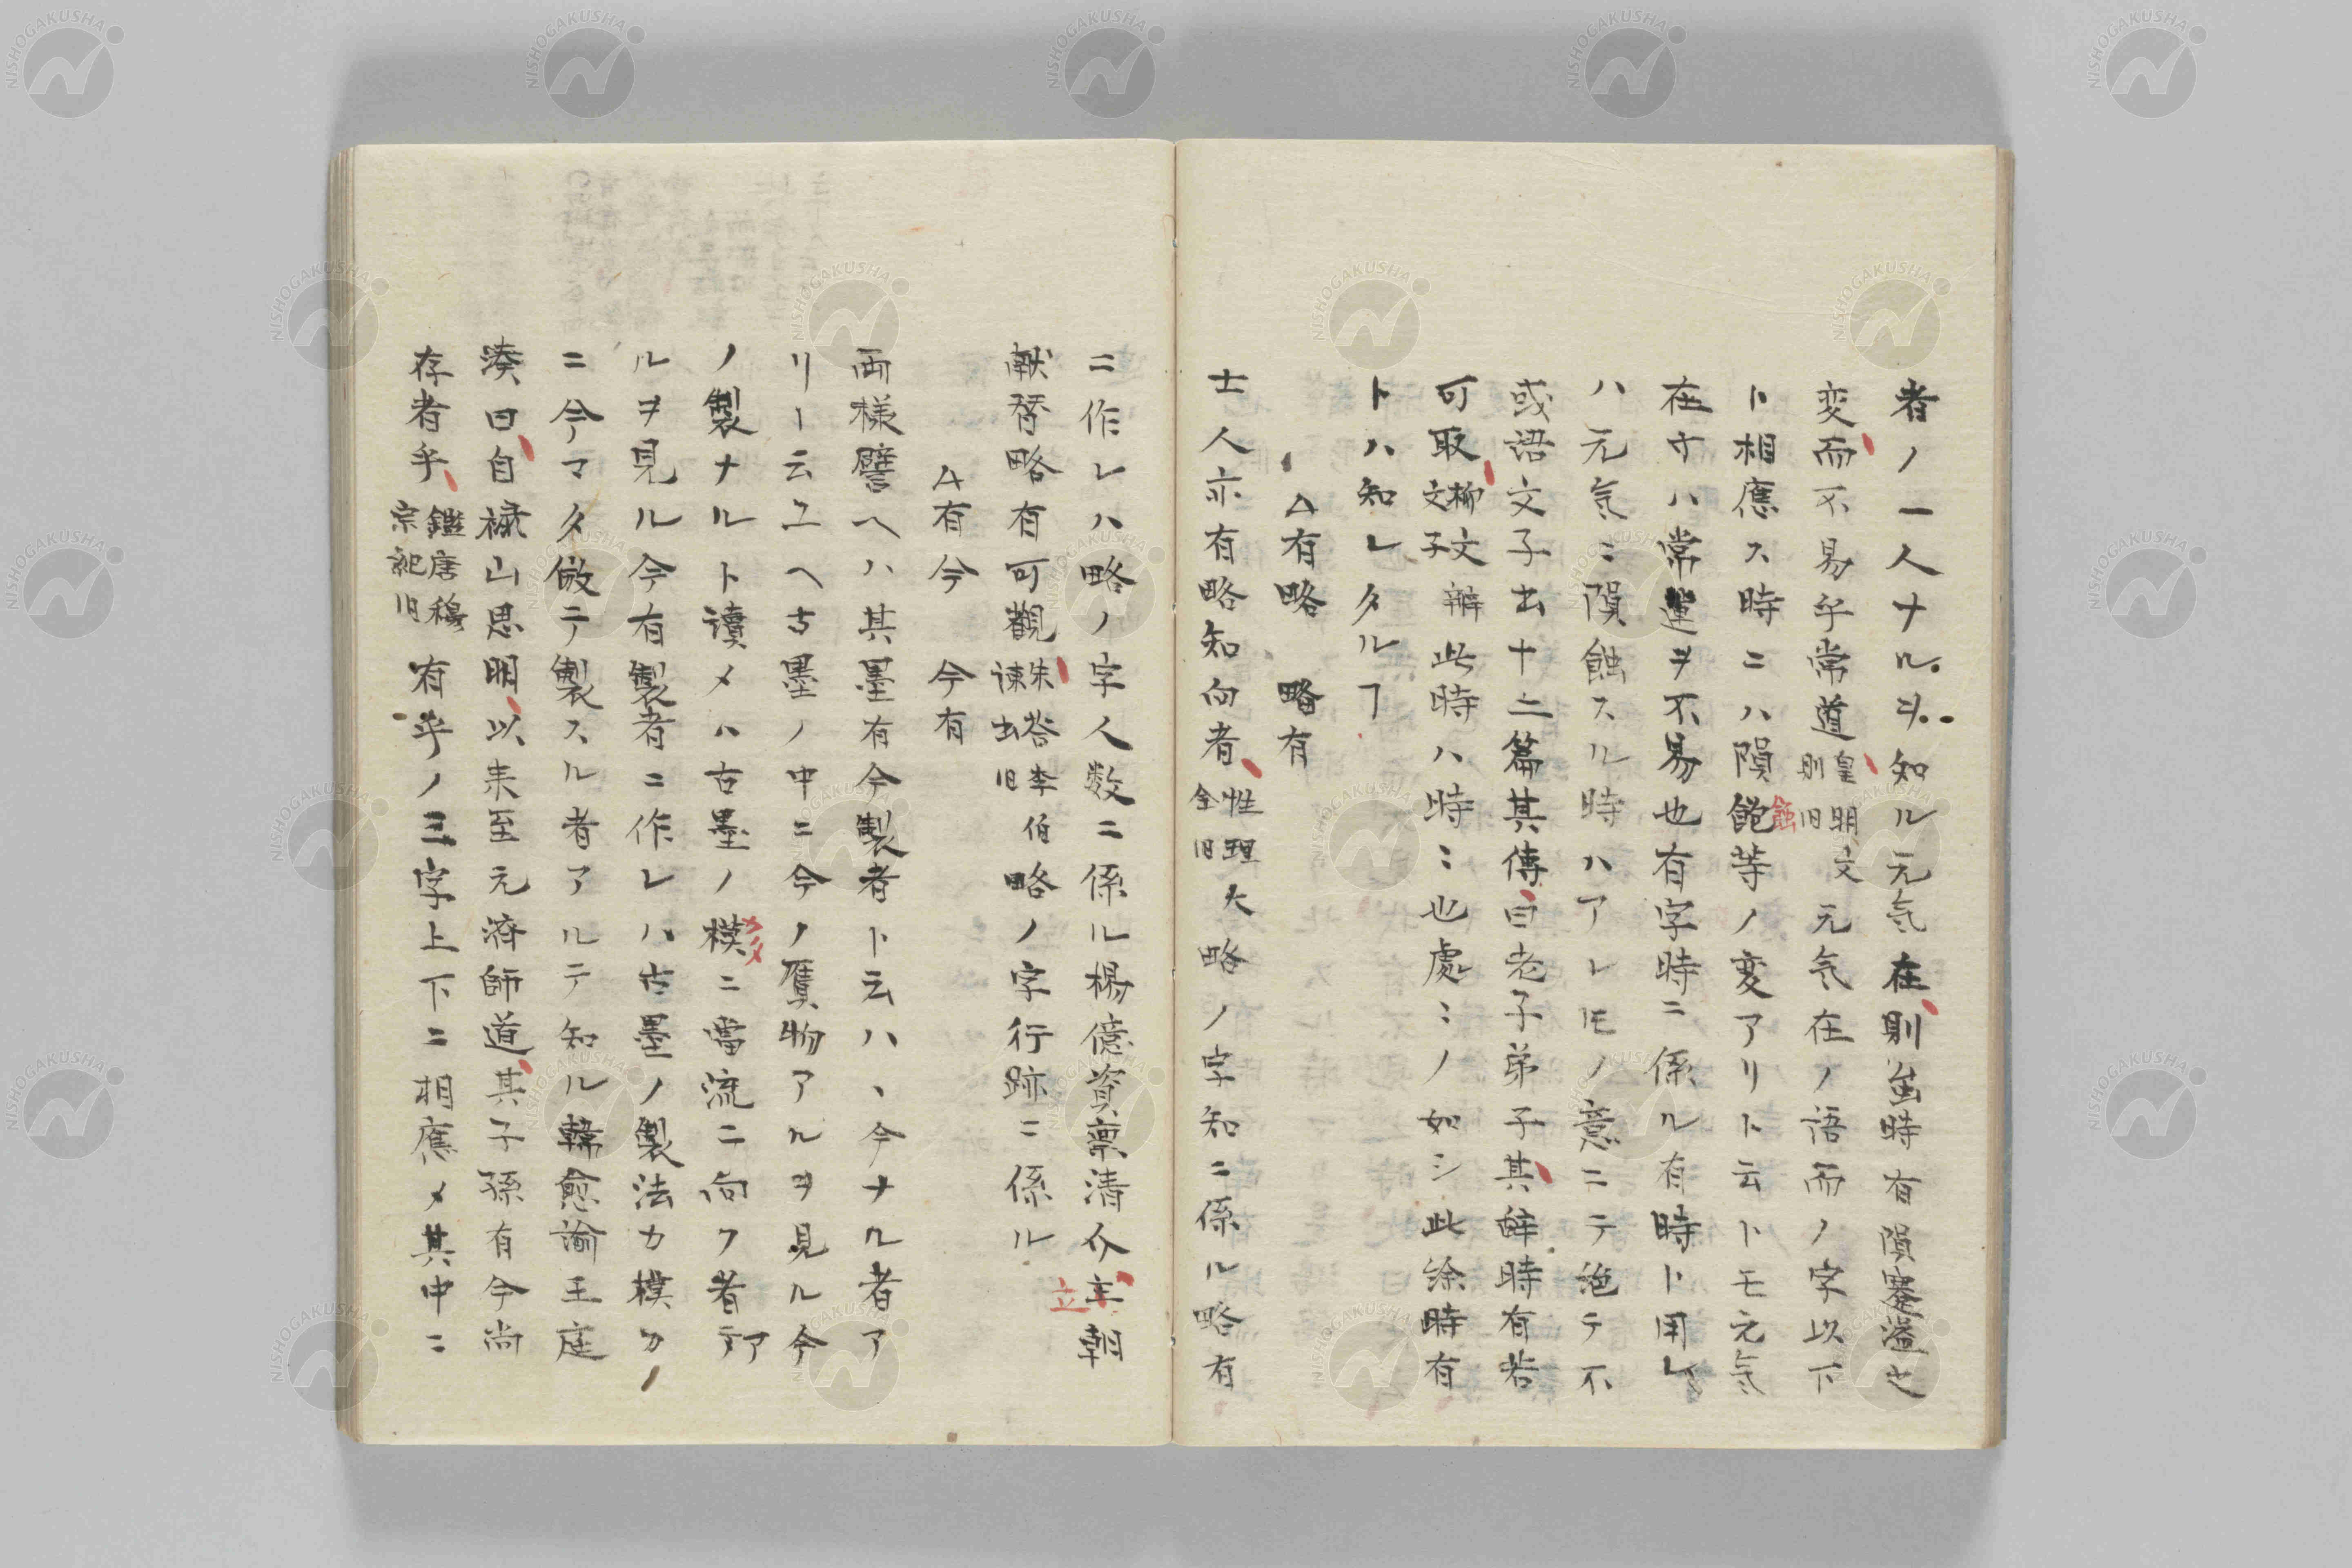 者ノ一人ナルヲ知ル元気在則虽時有隕蹇溢之
変而不易乎常道皇明文則旧元気在ノ語而ノ字以下
ト相應ス時ニハ隕飽蝕等ノ変アリト云トモ元気
在寸ハ常運ヲ不易也有字時ニ係ル有時ト用レ
ハ元気ニ隕蝕スル時ハアレ𪜈ノ意ニテ絶テ不
或語文子出十二篇其傳曰老子弟子其辭時有若
可取柳文文子辨此時ハ時ミ也處ミノ如シ此絵時有
トハ知レタルヿ
△有略 略有
士人亦有略知向者性理全旧大略ノ字知ニ係ル略有
ニ作レハ略ノ字人数ニ係ル楊億資稟清介主立朝
献替略有可觀朱荅李伯諌出旧略ノ字行跡ニ係ル
△有今 今有
両様譬ヘハ其墨有今製者ト云ハヽ今ナル者ア
リ一云ユヘ古墨ノ中ニ今ノ贋物アルヲ見ル今
ノ製ナルト讀メハ古墨ノ模ニ當流ニ向フ者アテ
ルヲ見ル今有製者ニ作レハ古墨ノ製法カ模カ
ニ今マタ倣テ製スル者アルテ知ル韓愈諭王庭
湊曰自禄山思明以来至元済師道其子孫有今尚
存者乎鑑唐穆宗紀旧有乎ノ三字上下ニ相應メ其中ニ
NISHOGAKUSHA